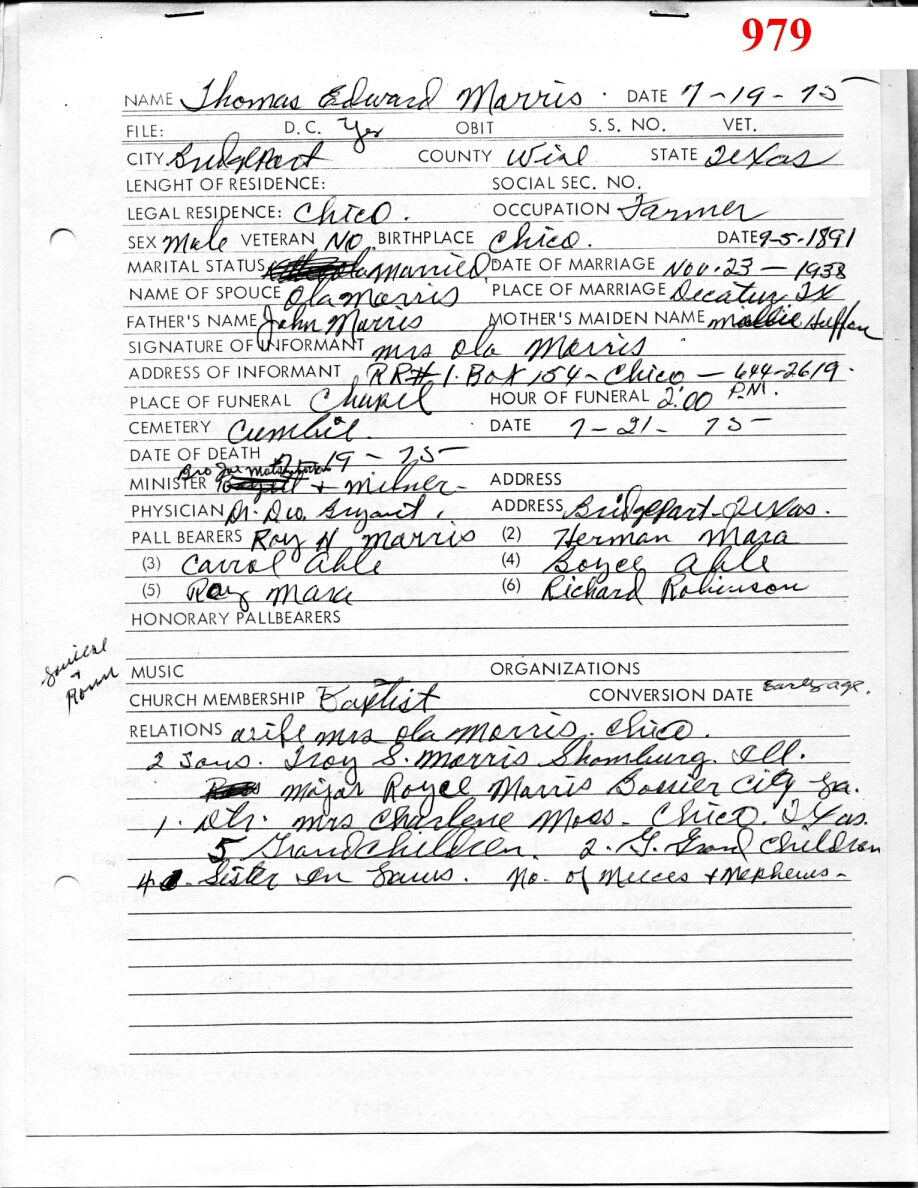 979
NAME Thomas Edward Morris DATE 7-19-75
FILE: D.C. Yes OBIT S.S. NO. VET.
CITY Bridgeport COUNTY Wise STATE Texas
LENGHT OF RESIDENCE: SOCIAL SEC. NO.
LEGAL RESIDENCE: Chico. OCCUPATION Farmer
SEX Male VETERAN NO. BIRTHPLACE Chico. DATE 9-5-1891
MARITAL STATUS Married DATE OF MARRIAGE Nov. 23 - 1938
NAME OF SPOUCE Ola Morris PLACE OF MARRIAGE Decatur, TX
FATHER'S NAME John Morris MOTHER'S MAIDEN NAME
SIGNATURE OF INFORMANT Mrs Ola Morris
ADDRESS OF INFORMANT RR# 1. Box 154 - Chico - 644-2619.
PLACE OF FUNERAL Chapel HOUR OF FUNERAL 2:00 P.M.
CEMETERY DATE 7-21-75
DATE OF DEATH 7-19-75
Bro Joe
MINISTER + Milner - ADDRESS
PHYSICIAN Dr. Geo. Bryant. ADDRESS Bridgeport - Texas.
PALL BEARERS Roy H Morris (2) Herman Mara
(3) Carrol Able (4) Boyce Able
(5) Ray Mara (6) Richard Robinson
HONORARY PALLBEARERS
MUSIC ORGANIZATIONS
+
CHURCH MEMBERSHIP Baptist CONVERSION DATE Early age.
RELATIONS wife Mrs Ola Morris. Chico.
2 Sons. Troy S. Morris Shomburg. Ill.
Major Royce Morris Bossier City La.
1. Dtr. Mrs Charlene Moss - Chico. Texas.
5 Grandchildren. 2. G. Grand Children
4 Sister In Laws. No. of Nieces + Nephews -